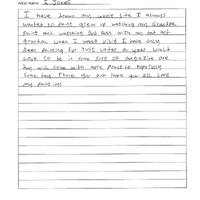 Artist Name: Z. Jones
I have drawn my whole life I always
wanted to paint grew up watching my Grandpa
paint and watching Bob Ross with my
Grandma when I would visit I have only
been painting for just under a year would
love to be in some sort of magazine one
day with some with more practice hopefully
some day Thank you and hope you all love
my paintings